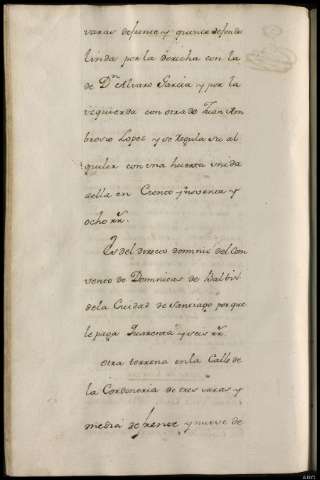 varas de frente, y quince de fondo
linda por la derecha con la
de Dn Alvaro Garcia y por la
izquierda con otra de Juan Am
brosio Lopez y se regula su al
quiler con una huerta unida
aella en Ciento y noventa y
ocho rr.
Es del directo dominio del Con
vento de Dominicas de Balbis
dela Ciudad de Santiago porque
le paga Quarenta y seis rr.
Otra terrena en la Calle de
la Cordoneria de tres varas y
media de frente y nueve de